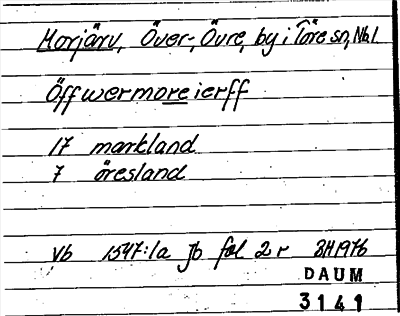 Morjärv, Över-, Övre, by i Töre sn, Nbl.
Öffwermoreierff
17 markland
7 öresland
Vb 1547:1a Jb fol 2 r BH 1976
DAUM
3141